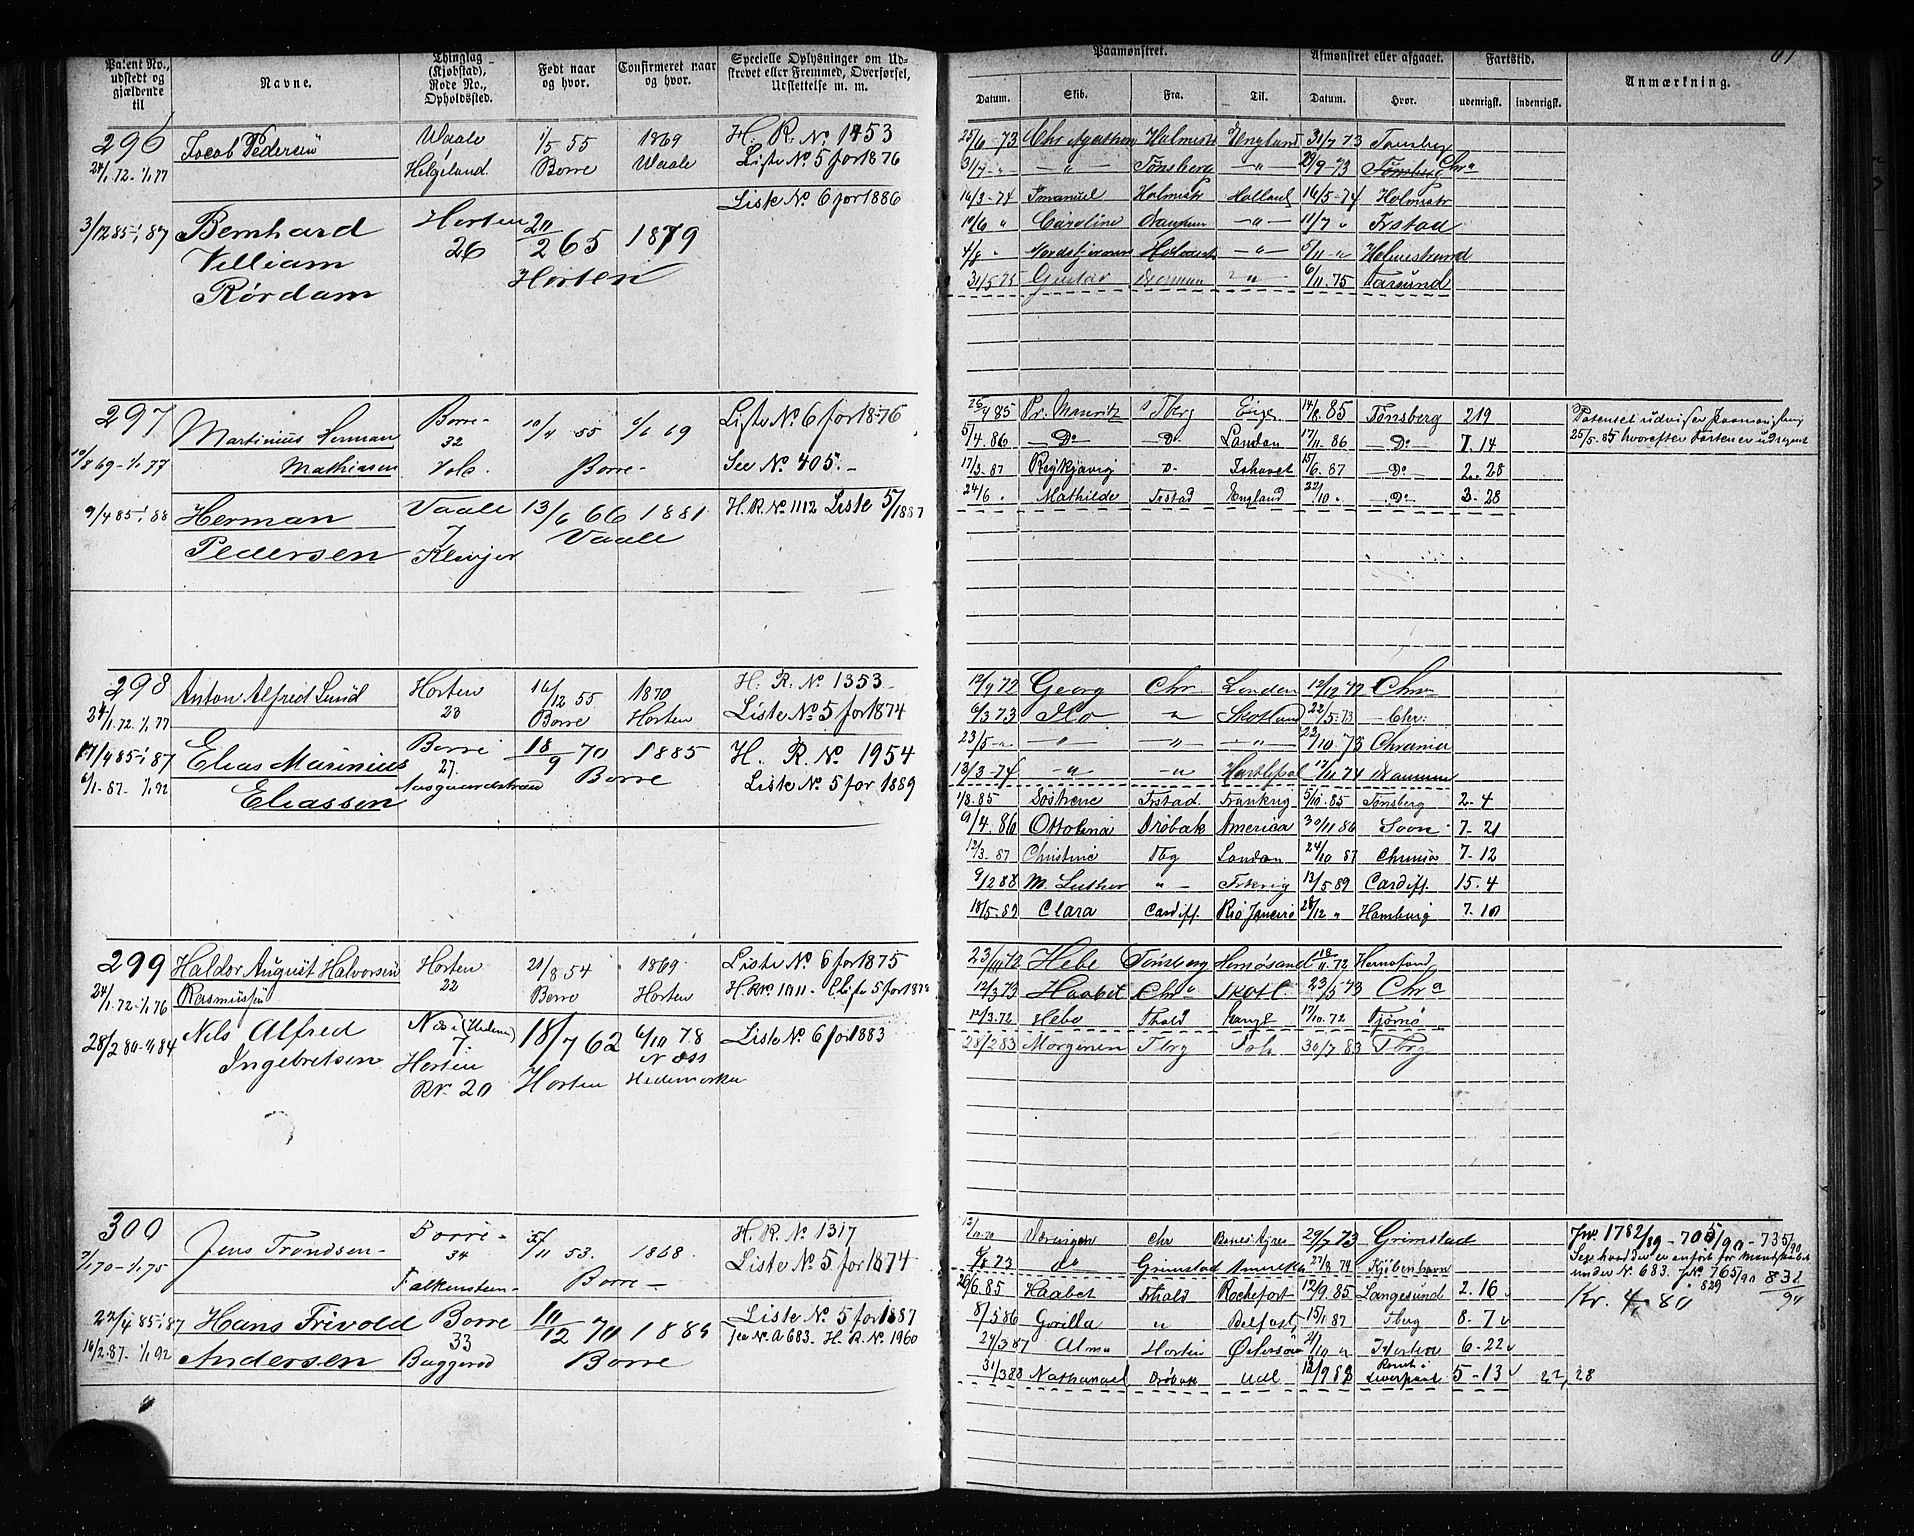 Patent No., udstedt og gjældende til
Navne.
Thinglag (Kjøbstad), Rode No., Opholdssted.
Født naar og hvor.
Confirmeret naar og hvor.
Specielle Oplysninger om Udskrevet eller Fremmed, Overførsel, Udslettelse m. m.
296
24/1 72 - 1/1 77
Jacob Pedersen
Waale
Helgeland.
1/5 55
Borre
1869
Waale
H. R. No 1453
Liste No 5 for 1876
3/12 85 - 1/1 87
Bernhard
Villiam
Rørdam
Horten
26
20/2 65
Horten
1879
Liste No 6 for 1886
297
10/8 69 - 1/1 77
Martinius Herman
Mathiasen
Borre -
32
10/4 55
Borre -
69
Liste No 6 for 1876
See No 405. -
9/4 85 - 1/1 88
Herman
Pedersen
Vaale
7
13/6 66
Vaale
1881
H. R. No 1112 Liste 5/1887
298
24/1 72 - 1/1 77
Anton Alfred Lund
Horten
23
16/12 55
Borre
1870
Horten
H. R. No 1353
Liste No 5 for 1874
17/4 85 - 1/1 87
6/1 87 - 1/1 92
Elias Marinius
Eliassen
Borre
27.
18/9 70
Borre
1885
H. R. No 1954
Liste No 5 for 1889
299
24/1 72 - 1/1 76
Haldor August Halvorsen
Rasmussen
Horten
22
21/8 54
Borre
1869
Horten
Liste No 6 for 1875
H. R. No 1011 - Liste 5 for
28/2 80 - 1/1 84
Nels Alfred
Ingebretsen
7.
Horten
Rr. 20
18/7 62
Horten
6/10 78
Næss
Hedemarken
Liste No 6 for 1883
300
7/1 70 - 1/1 75
Jens Trondsen -
Borre -
34
Falkensteen -
11 53.
Borre -
1868
H. R. No 1317
Liste No 5 for 1874
22/4 85 - 1/1 87
16/2 87 - 1/1 92
Hans Trivold
Andersen
Borre
33
Baggerød
10/12 70
Borre
Liste No 5 for 1887
see No A 683. H. R. No 1960
Paamønstret.
Afmønstret eller afgaaet.
Fartstid.
Anmærkning.
Datum. Skib. Fra. Til. Datum. Hvor. udenrigsk. indenrigsk.
25/6 - 73 Chr Agathon Holmestr England 31/7 73 Tønsberg
31/7 - " - " - Tønsberg - " - 29/9 - 73 Chra
16/3 - 74 Imanuel Holmestr Holland 16/5 - 74 Holmstr
10/6 " Caroline Drammen - " - 11/7 " Frstad
4/8 " Nordstjernen Holmestr - " - 5/11 " Holmestrand
31/5 75 Gustav Drammen " 6/11. 75 Farsund
25/4 85 Pr. Mauritz Tberg 14/8. 85 Tønsberg 219
5/4. 86 - Do - - D - London 17/11 86 - Do - 7. 14
17/3. 87 Reykjavig D - Ishavet 15/6. 87 - Do 2. 28
24/6 " Mathilde Frstad England 22/10 " - Do 3. 28
Patentet udviser paamønstring
25/5. 85 hvorefter Farten er udregnet
12/9 72 Georg Chr London 12/12 72 Chra
6/3 73 " Skotland 22/5. 73 - Chr:
23/5 - " - " - - " - - " - 23/10 73 Chrania
13/3 - 74 - " - " Hartlepol 17/11 74 Drammen
1/8. 85 Søstrene Frstad. Frankrig 5/10. 85 Tønsberg 2. 4
9/4. 86 Ottolina Drøbak America 30/11 86 Soon 7. 21
12/3. 87 Christine Tbg London 24/10 87 Chrania 7. 12
9/2 88 M. Luther " - 13/5 89 Cardiff. 15. 4
18/5. 89 Clara Cardiff. Rio Janeiro 28/12 " Hamburg 7. 10
23/ 72 Hebe Tønsberg Hernøsand 18/11. 72 Hernøsand
12/3 73 Haabet Chra Skotl. 23/5 73 Chra
12/3. 72 Hebe Fhald 17/10. 72 Tjømø
28/2 83 Morgenen Tbrg 30/7 83 Tbrg
12/10 70 Væringen Chr Benos Ajres 29/7 73 Grimstad
8 73 do Grimstad Amerika 27/8 74 Kjøbenhavn
26/6. 85 Haabet Fhald Rochefort 12/9. 85 Langesund 2. 16
8/5 86 Gorilla " Belfast 15/1 87 Tberg 8. 7
24/3 87 Alma Horten Østersøen 2/10 " Horten 6 - 22
31/3 88 Nathanael Drøbak Udl 12/9 88 Rømt i Liverpool 5 - 13 22, 28
Jno 1782/89 - 705/90 - 735/90
under No 683. Jno 765/90 829 831/94
Kr. 4, 80